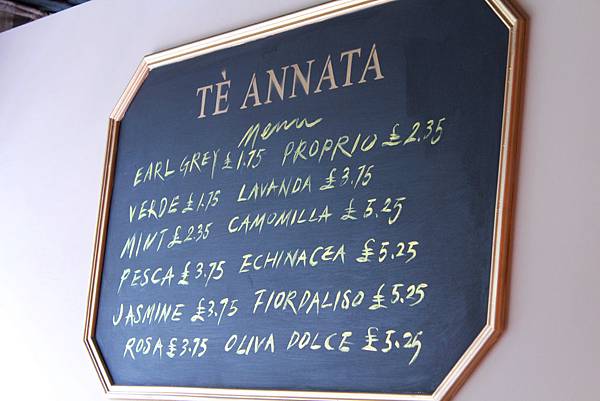 TÈ ANNATA
Menu
EARL GREY £1.75 PROPRIO £2.35
VERDE £1.75 LAVANDA £3.75
MINT £2.35 CAMOMILLA £5.25
PESCA £3.75 ECHINACEA £5.25
JASMINE £3.75 FIORDALISO £5.25
ROSA £3.75 OLIVA DOLCE £5.25